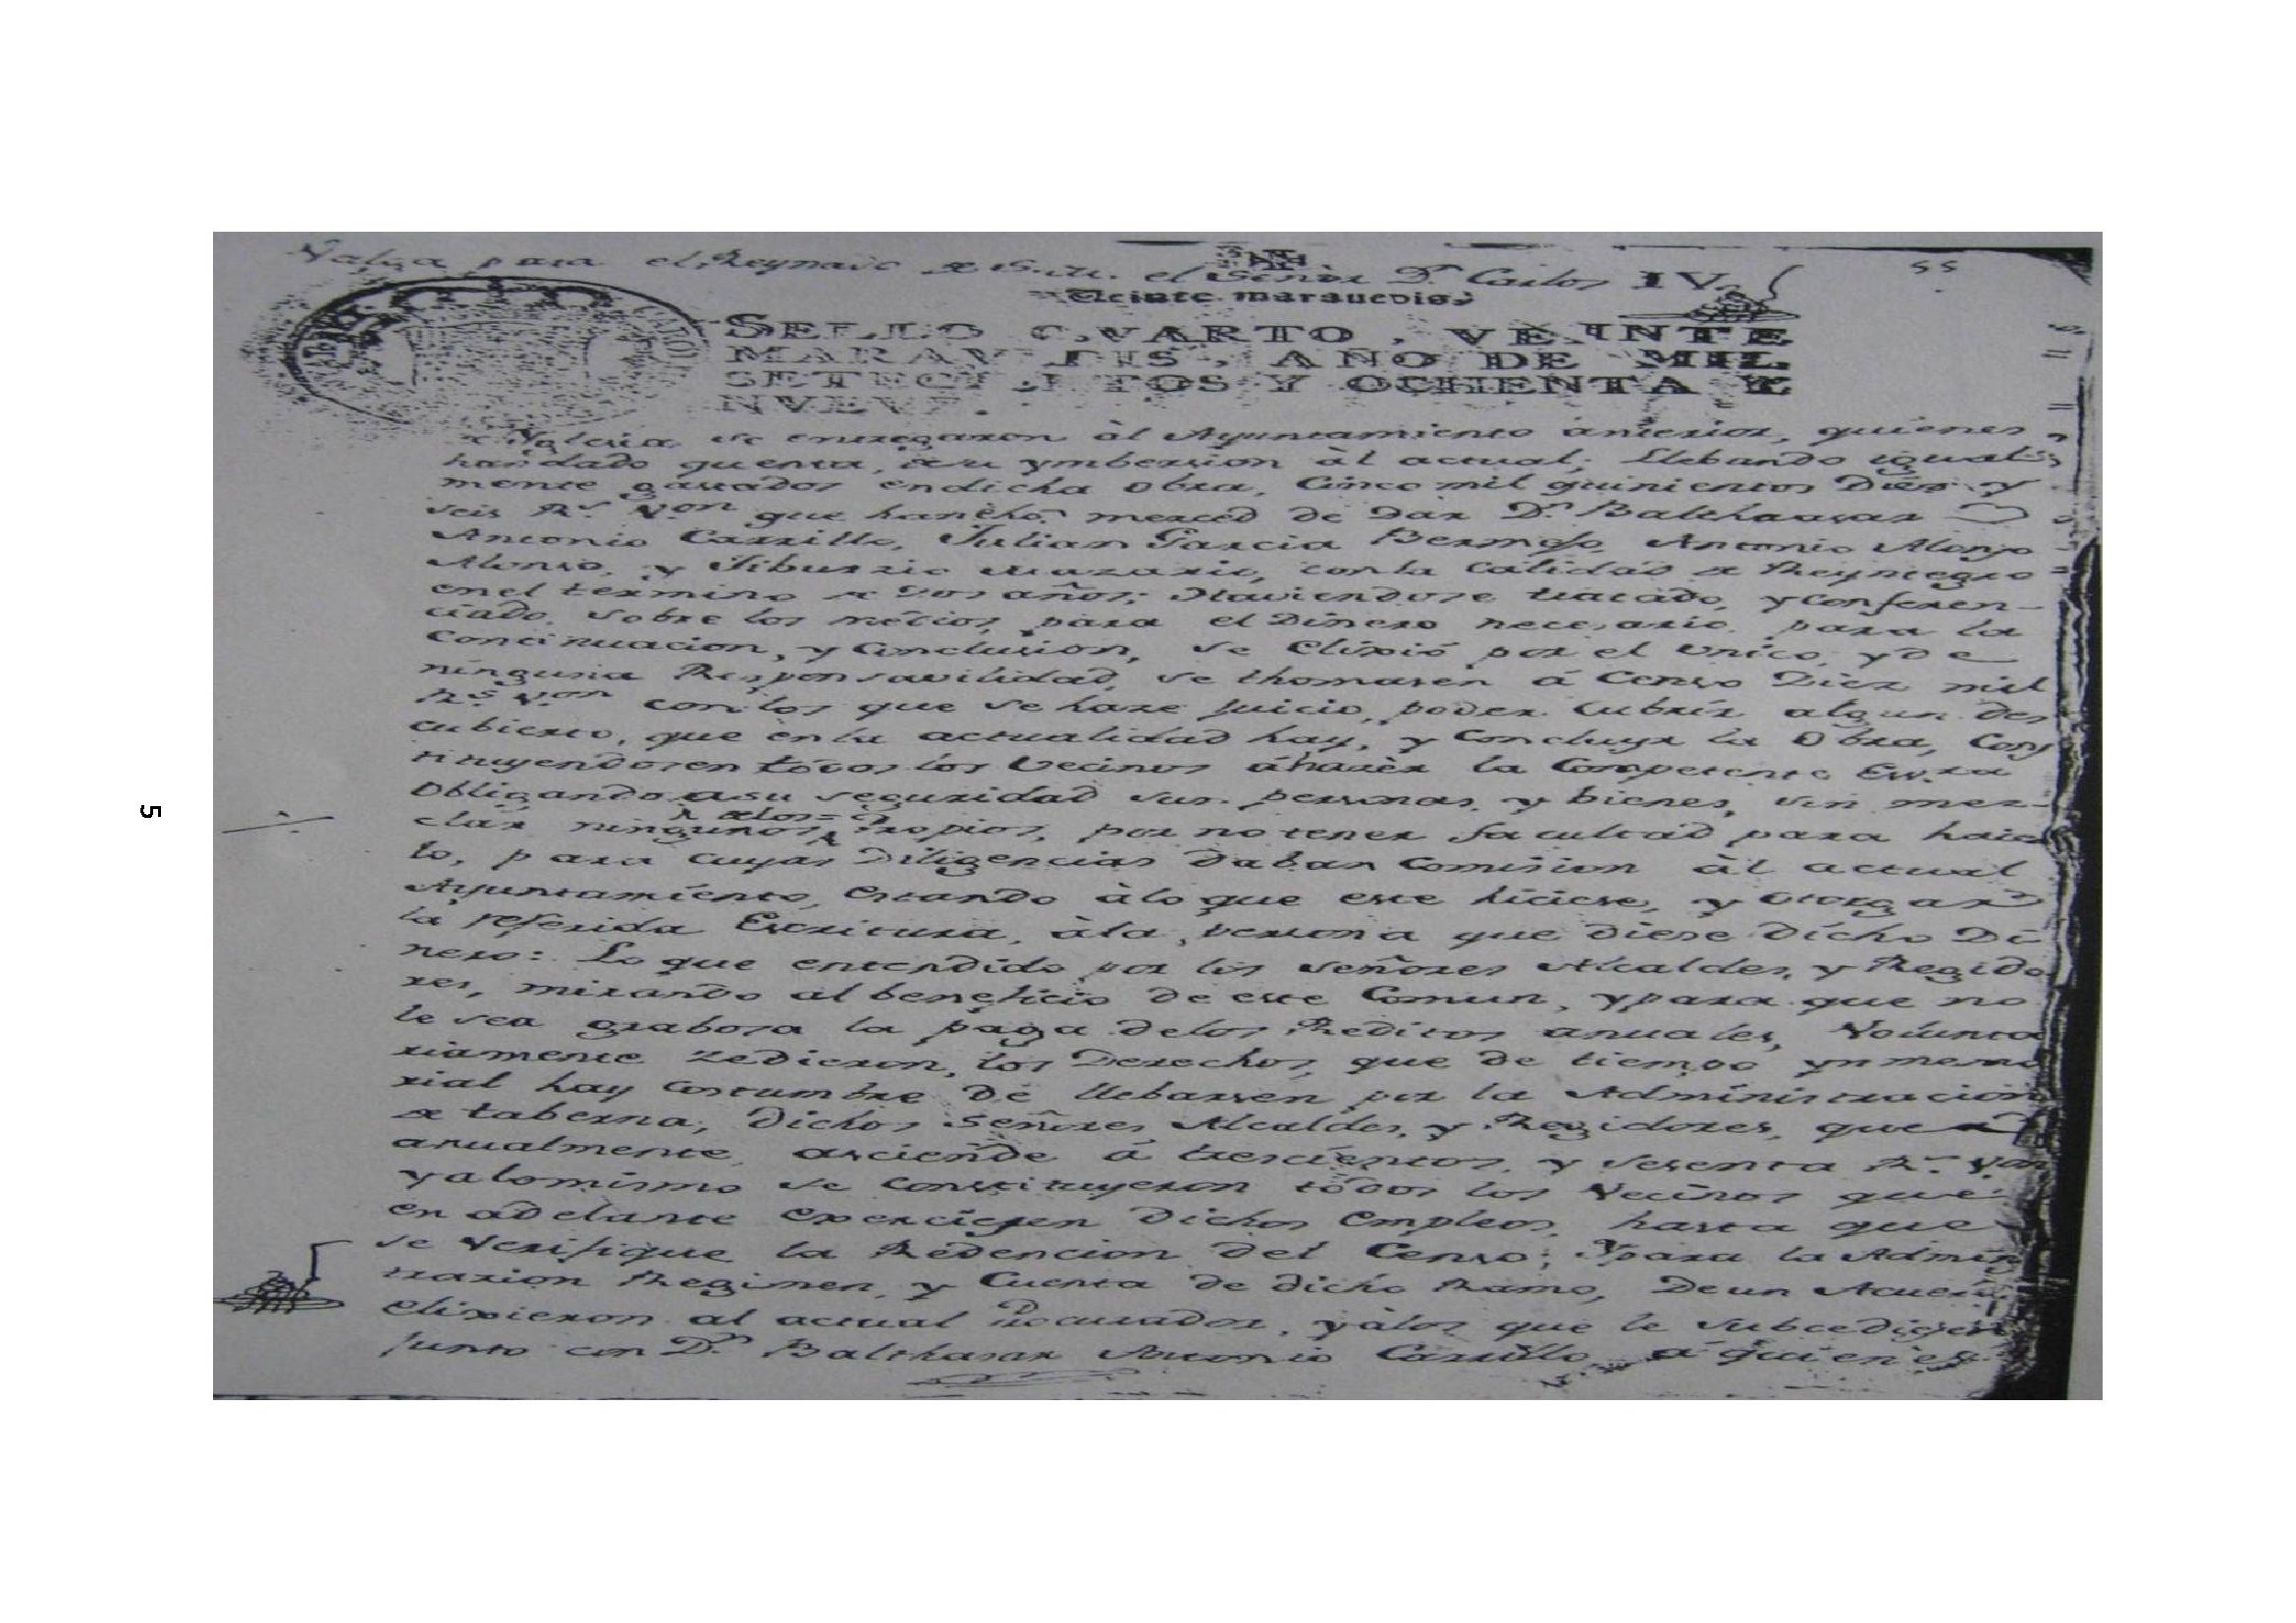 Valga para el Reynado de S.M. el Señor Dn. Carlos IV.
55
Veinte maravedis
SELLO QVARTO, VEINTE
MARAVEDIS, AÑO DE MIL
SETECIENTOS Y OCHENTA Y
NVEVE.
Yglesia se entregaron àl Ayuntamiento ànterior, quienes
han dado quenta, de su ymbersion àl actual; llebando igual
mente gastados en dicha obra, Cinco mil quinientos Diez y
seis Rs. Von que han hho. merced de dar Dn. Balthassar
Antonio Carrillo, Julian Garcia Bermejo, Antonio Alonso
Alonso, y Tiburzio, con la calidad de Reyntegro
en el termino de dos años; Haviendose tratado, y conferen-
ciado, sobre los médios, para el Dinero necesario para la
Continuacion, y Conclusion, se elixió por el unico, y de
ninguna Responsavilidad, se thomasen á Censo Diez mil
Rs. Von con los que se haze juicio, poder cubrir algun des
cubierto, que en la actualidad hay, y concluyr la Obra, Cons
tituyendosen tódos los Vecinos áhazèr la Competente Essra
Obligando asu seguridad sus personas, y bienes, sin mez-
clar ningunos delos Propios, por no tener facultad para hacer
lo, para cuyas Diligencias daban Comision àl actual
Ayuntamiento, Estando àlo que este hiciese, y otorgar
la referida Escritura, àla persona que diese dicho Di
nero: Lo que entendido por los señores Alcaldes, y Regido
res, mirando al beneficio de este Comun, y para que no
le sea grabosa la paga delos Reditos anuales, Volunta
riamente zedieron, los Derechos, que de tiempo ynmemo
rial hay costumbre de llebarsen por la Administracion
de taberna, dichos Señores Alcaldes, y Regidores, que
anualmente, asciende á trescientos, y sesenta Rs. Von
y alomismo se constituyeron tódos los Vecinos que
en adelante exerciesen dichos Empleos, hasta que
se verifique la Redencion del Censo; Ypara la Adminis
trazion Regimen, y Cuenta de dicho Ramo, De un Acuerdo
elixieron al actual Procurador, y álos que le subcediesen
junto con Dn. Balthasar Antonio Carrillo, á quienes
5